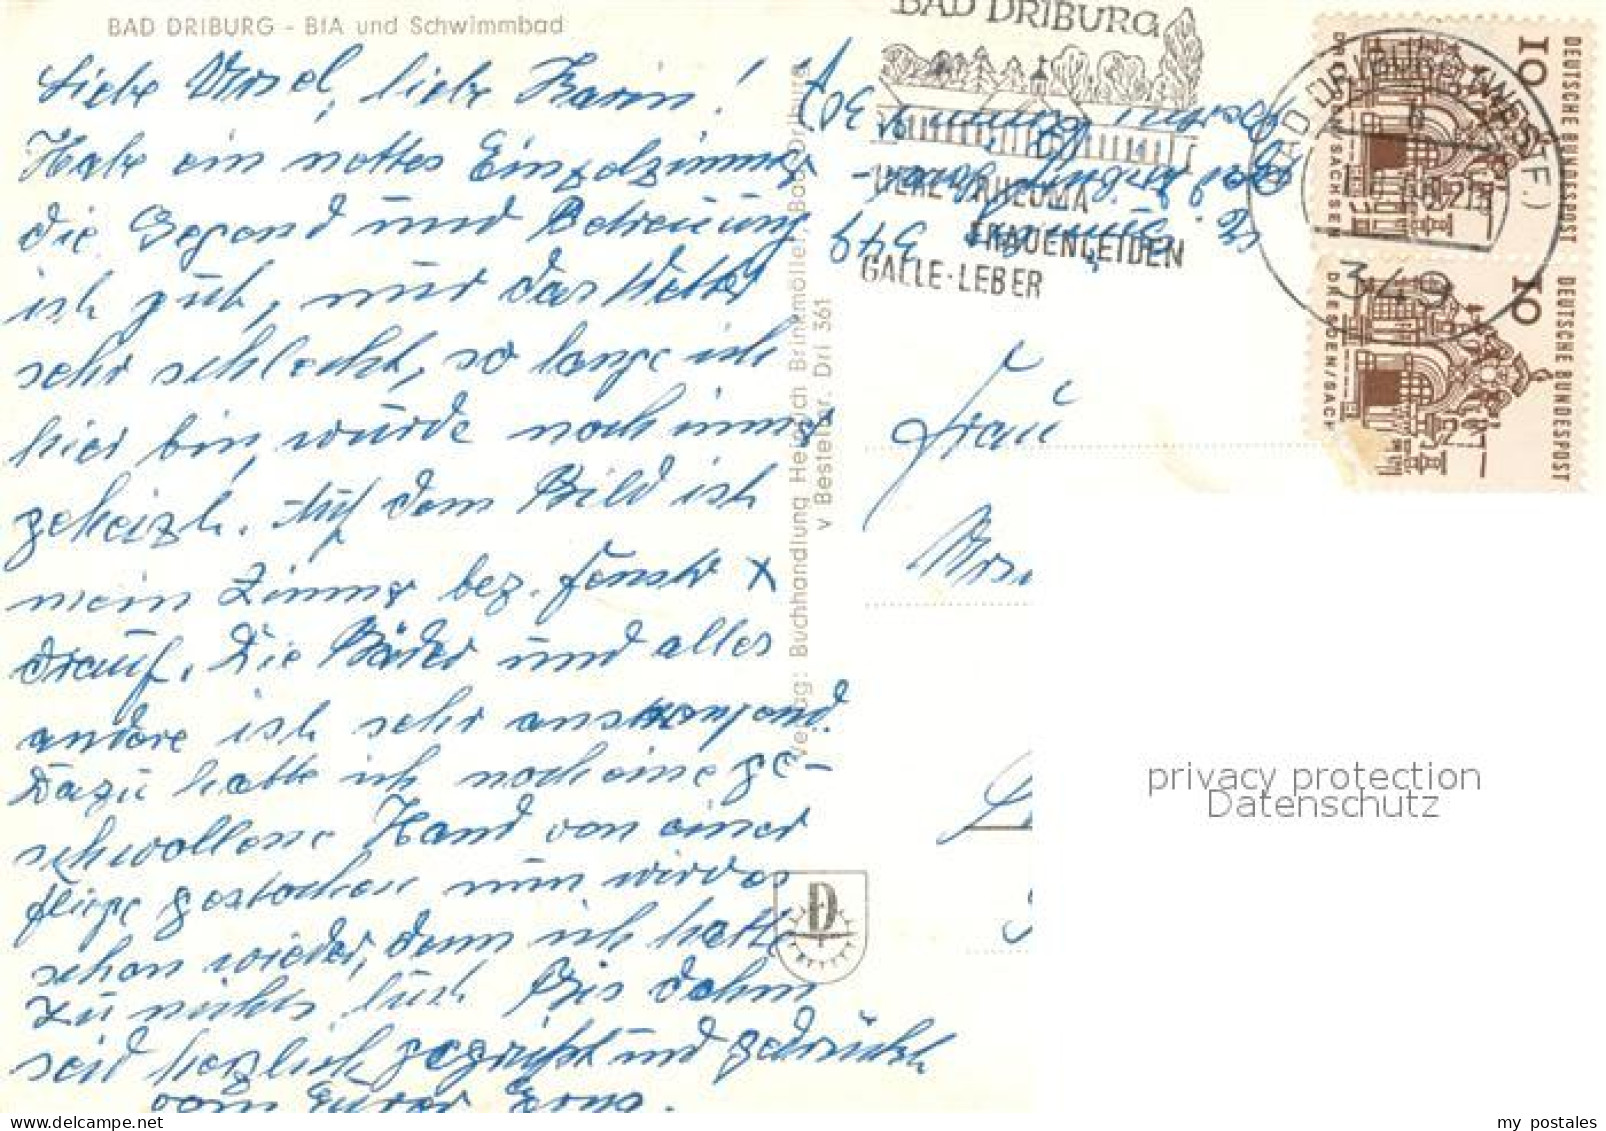 BAD DRIBURG - BfA und Schwimmbad
Liebe Ursel, liebe Karin!
Habe ein nettes Einzelzimmer
die Gegend und Betreuung
ist gut, nur das Wetter
sehr schlecht, so lange ich
hier bin, wurde noch immer
geheizt. Auf dem Bild ist
mein Zimmer bez. Fenster x
drauf. Die Bäder und alles
andere ist sehr anstrengend.
Dazu hatte ich noch eine ge-
schwollene Hand von einer
Fliege gestochen nun wird es
schon wieder, denn ich hatte
zu nichts Lust. Bis dahin
seid herzlich gegrüßt und gedrückt
von Eurer Erna.
Verlag: Buchhandlung Heinrich Brinkmöller, Bad Driburg
v Bestellnr. Dri 361
D
BAD DRIBURG
HERZ·RHEUMA
FRAUENLEIDEN
GALLE·LEBER
Zimmer 307
Bad Driburg
349
BAD DRIBURG (WESTF.)
349
10
DEUTSCHE BUNDESPOST
DRESDEN/SACHSEN
10
DEUTSCHE BUNDESPOST
DRESDEN/SACH
Frau
privacy protection
Datenschutz
my postales